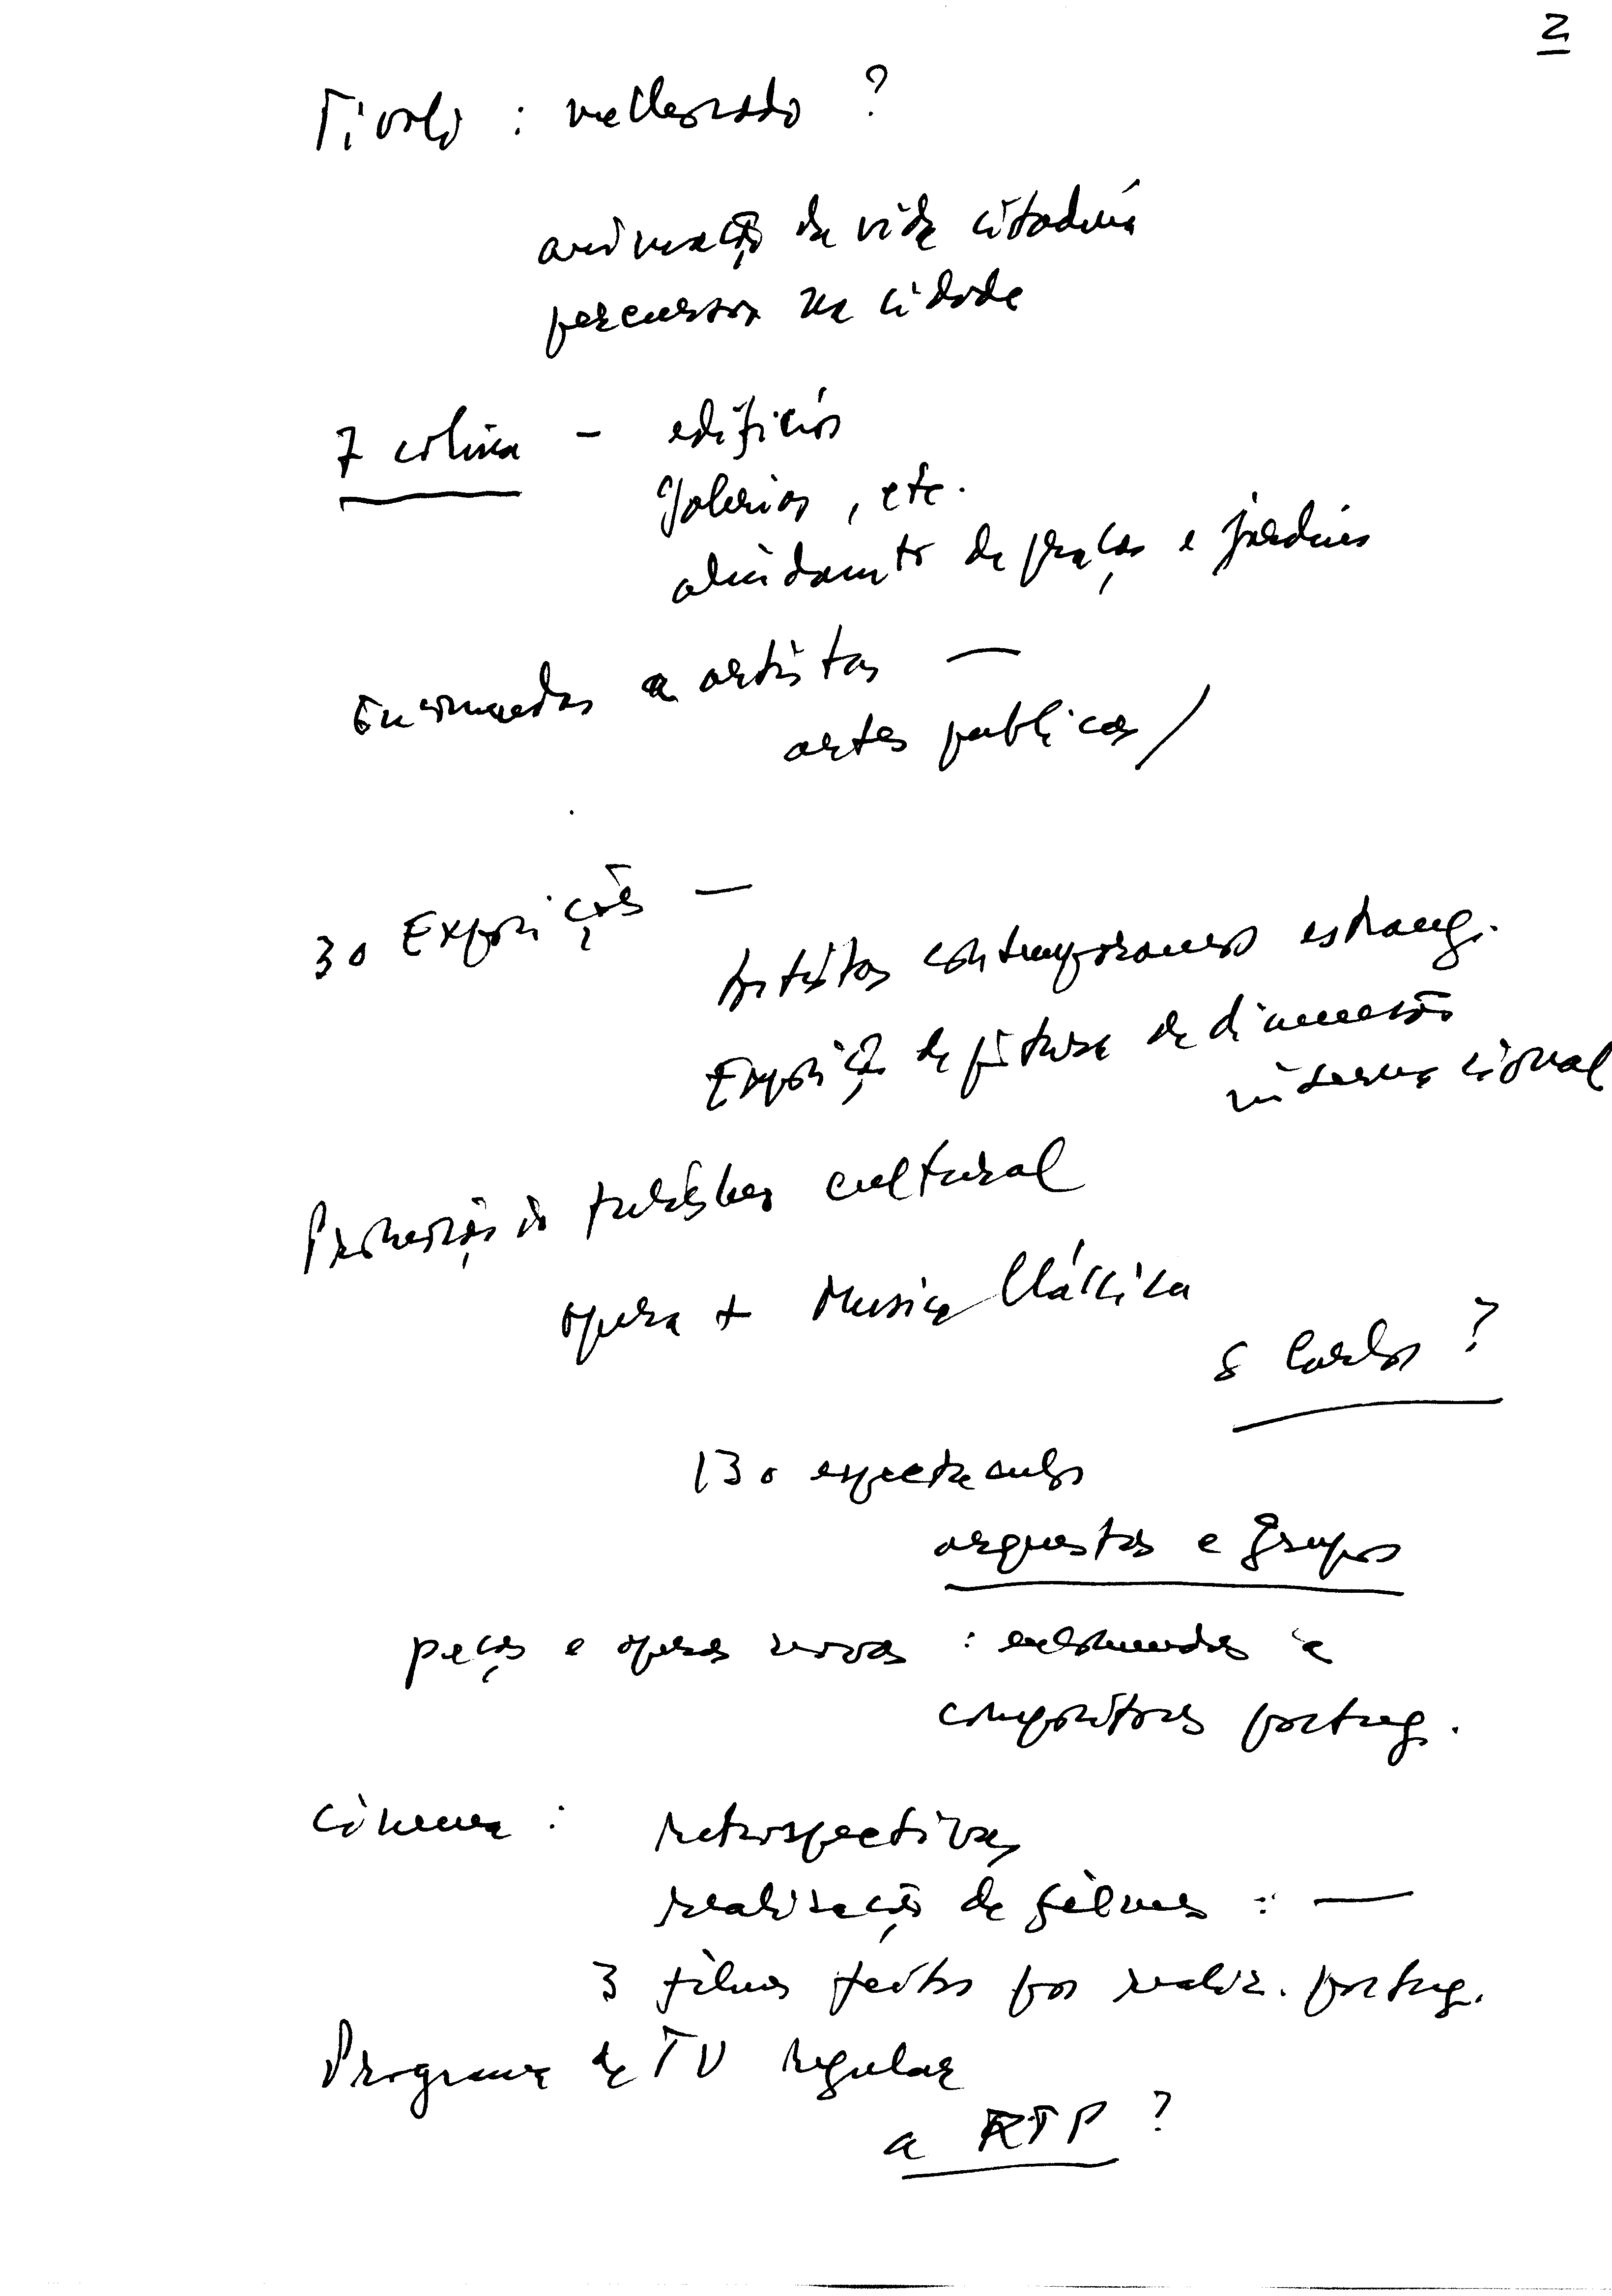 2
Tivoli : melhorado ?
animação da vida citadina
percursos na cidade
7 colina - edifícios
Galerias, etc.
de praças e jardins
Encomendas a artistas —
artes publicas /
30 Exposições —
Artistas contemporaneos estrang.
Exposição de pintura de dimensão
internacional
Promoção do turismo cultural
opera + Musica Clássica
S Carlos ?
130 espectaculos
orquestas e grupos
peças e operas novas : encomendas a
compositores portug.
Cinema : Retrospectivas
realização de filmes : —
3 filmes feitos por realiz. portug.
Programa de TV regular
a RTP ?